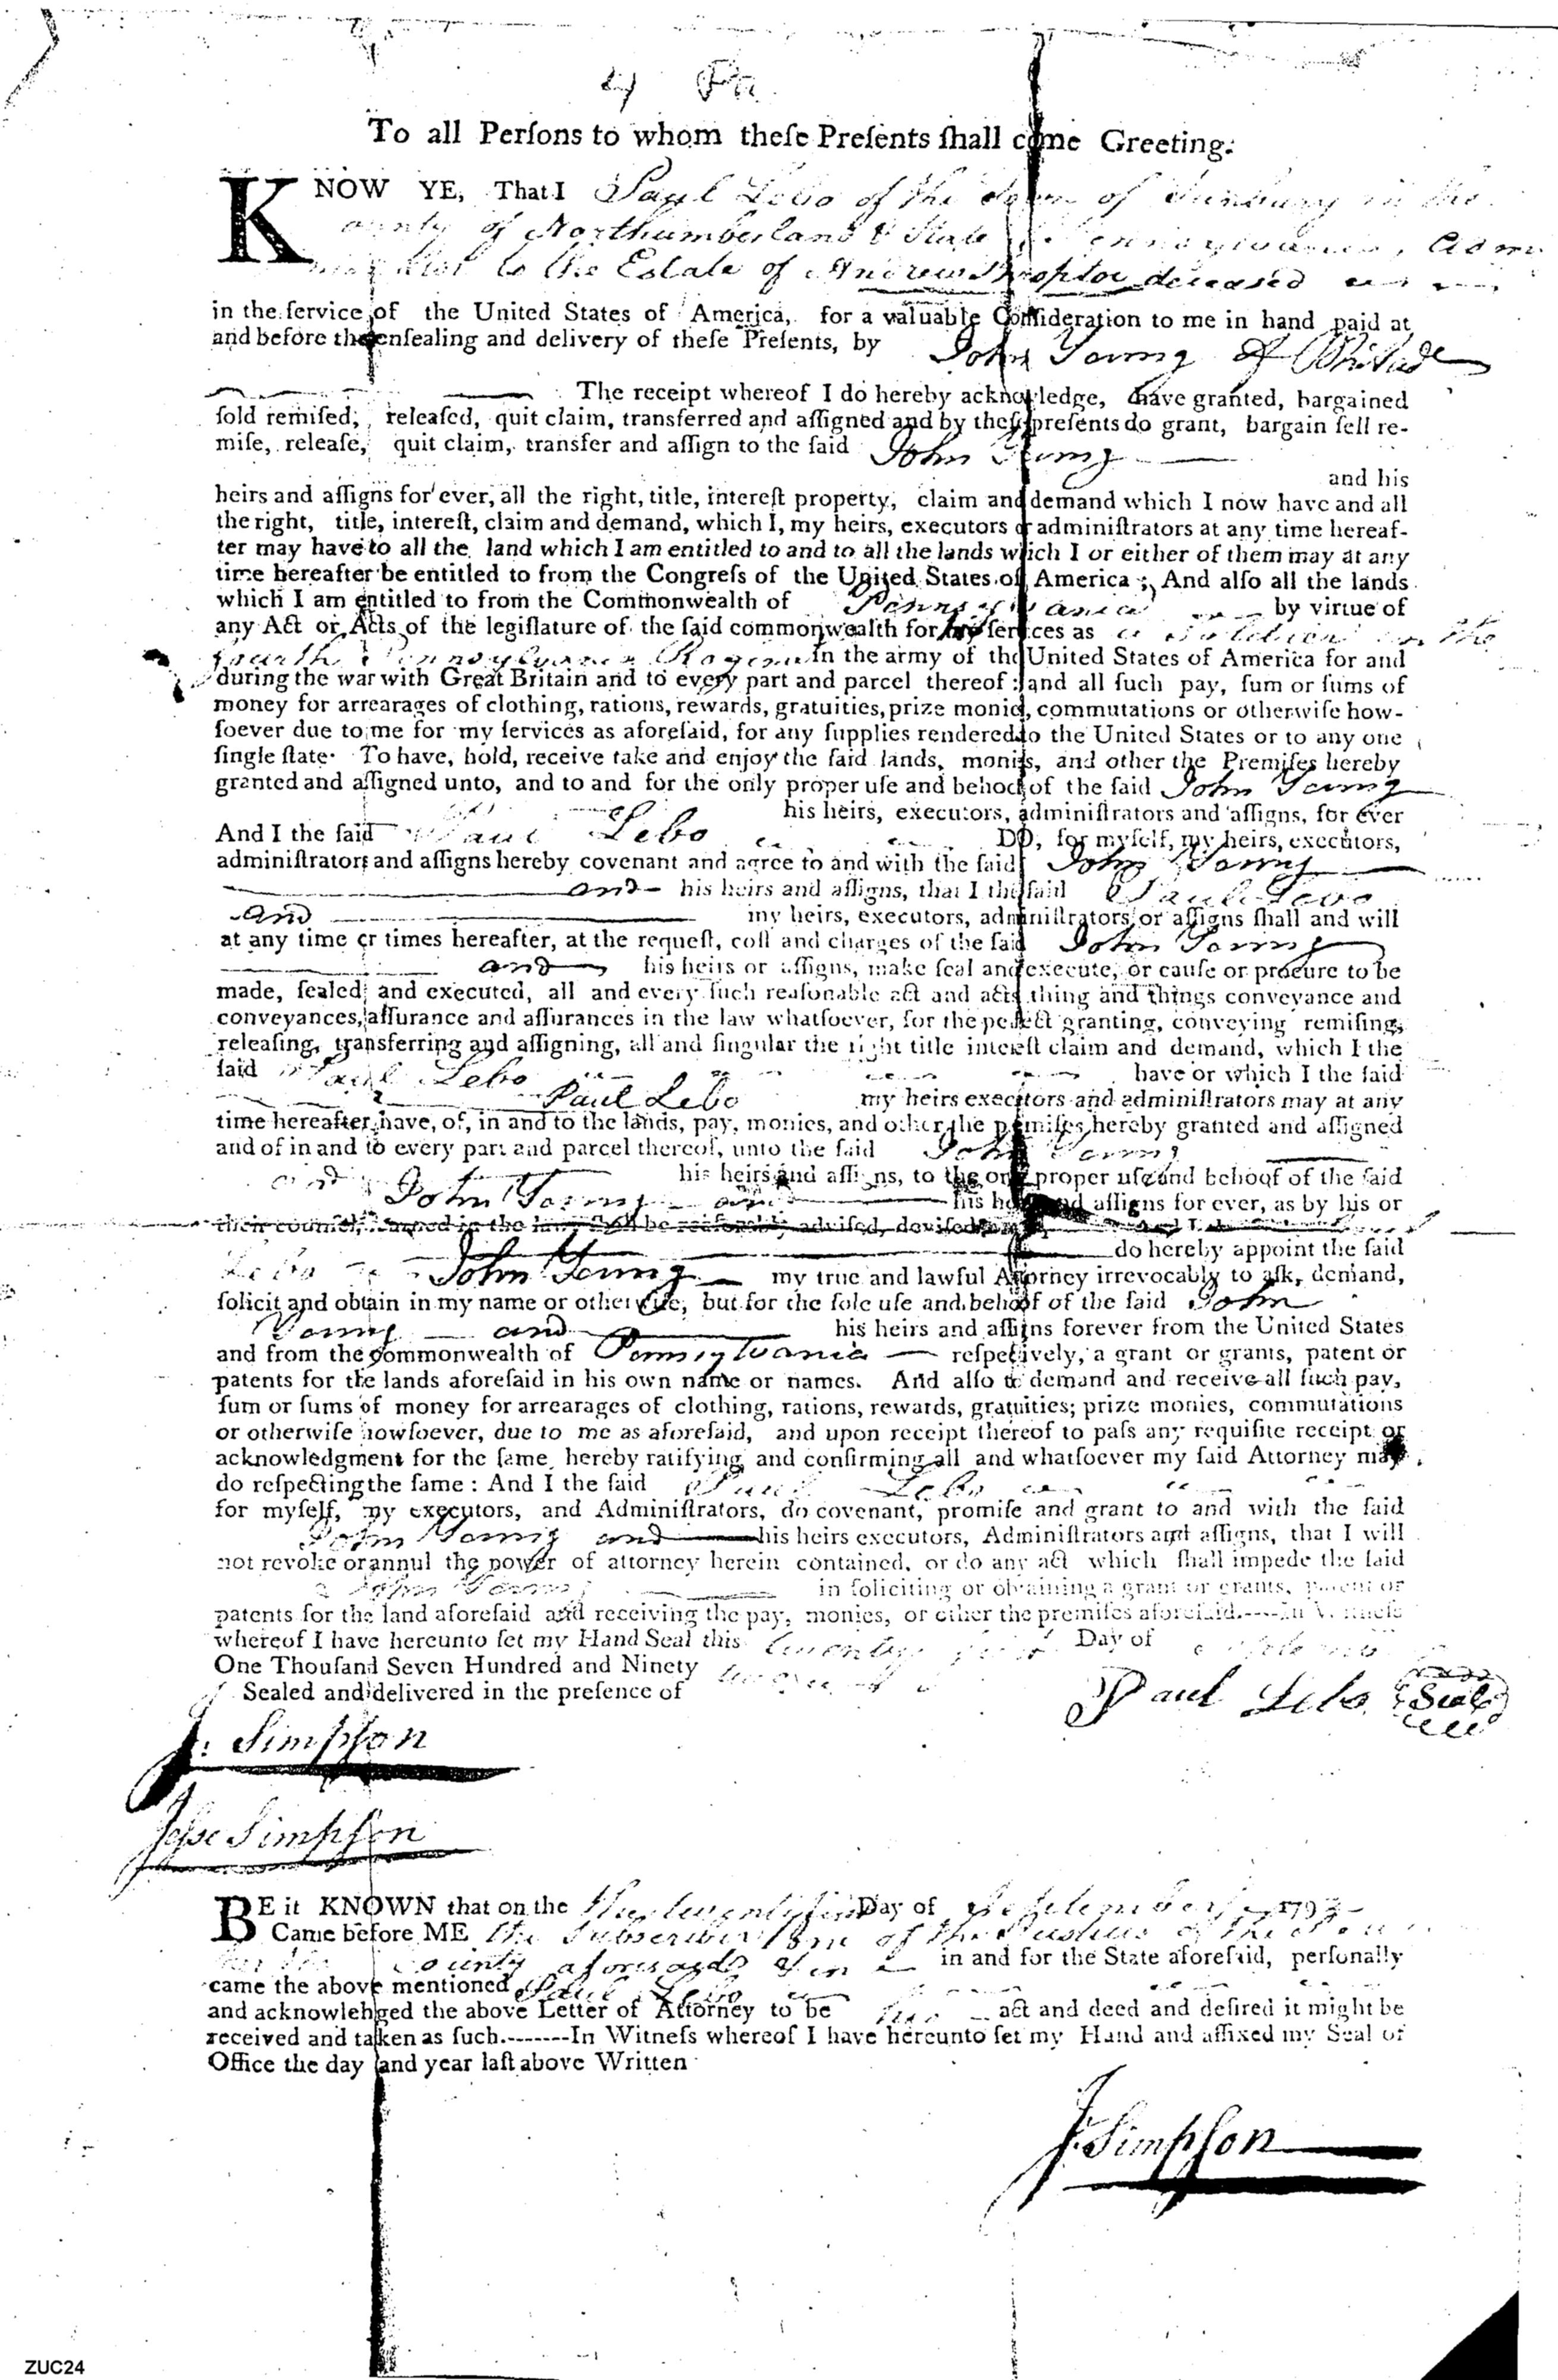 To all Perſons to whom theſe Preſents ſhall come Greeting:
KNOW YE, That I Paul Lebo of the Town of Sunbury in the
County of Northumberland & State of Pennsylvania, Admi
nistrator to the Estate of Andrew deceased
in the ſervice of the United States of America, for a valuable Conſideration to me in hand paid at
and before the enſealing and delivery of theſe Preſents, by John Young of Philade
The receipt whereof I do hereby acknowledge, have granted, bargained
ſold remiſed, releaſed, quit claim, transferred and aſſigned and by theſe preſents do grant, bargain ſell re-
miſe, releaſe, quit claim, transfer and aſſign to the ſaid John Young
and his
heirs and aſſigns for ever, all the right, title, intereſt property, claim and demand which I now have and all
the right, title, intereſt, claim and demand, which I, my heirs, executors or adminiſtrators at any time hereaf-
ter may have to all the land which I am entitled to and to all the lands which I or either of them may at any
time hereafter be entitled to from the Congreſs of the United States of America; And alſo all the lands
which I am entitled to from the Commonwealth of Pennsylvania by virtue of
any Act or Acts of the legiſlature of the ſaid commonwealth for ſervices as a in the
fourth Pennsylvania Regiment in the army of the United States of America for and
during the war with Great Britain and to every part and parcel thereof: and all ſuch pay, ſum or ſums of
money for arrearages of clothing, rations, rewards, gratuities, prize monies, commutations or otherwiſe how-
ſoever due to me for my ſervices as aforeſaid, for any ſupplies rendered to the United States or to any one
ſingle ſtate. To have, hold, receive take and enjoy the ſaid lands, monies, and other the Premiſes hereby
granted and aſſigned unto, and to and for the only proper uſe and behoof of the ſaid John Young
his heirs, executors, adminiſtrators and aſſigns, for ever
And I the ſaid Paul Lebo DO, for myſelf, my heirs, executors,
adminiſtrators and aſſigns hereby covenant and agree to and with the ſaid John Young
and his heirs and aſſigns, that I the ſaid Paul Lebo
and my heirs, executors, adminiſtrators or aſſigns ſhall and will
at any time or times hereafter, at the requeſt, coſt and charges of the ſaid John Young
and his heirs or aſſigns, make ſeal and execute, or cauſe or procure to be
made, ſealed and executed, all and every ſuch reaſonable act and acts thing and things conveyance and
conveyances, aſſurance and aſſurances in the law whatſoever, for the perfect granting, conveying remiſing,
releaſing, transferring and aſſigning, all and ſingular the right title intereſt claim and demand, which I the
ſaid Paul Lebo have or which I the ſaid
Paul Lebo my heirs executors and adminiſtrators may at any
time hereafter have, of, in and to the lands, pay, monies, and other the premiſes hereby granted and aſſigned
and of in and to every part and parcel thereof, unto the ſaid John Young
his heirs and aſſigns, to the only proper uſe and behoof of the ſaid
and John Young and his heirs and aſſigns for ever, as by his or
their counſel, learned in the law, ſhall be reaſonably adviſed, deviſed
do hereby appoint the ſaid
Lebo John Young my true and lawful Attorney irrevocably to aſk, demand,
ſolicit and obtain in my name or otherwiſe, but for the ſole uſe and behoof of the ſaid John
Young and his heirs and aſſigns forever from the United States
and from the commonwealth of Pennsylvania reſpectively, a grant or grants, patent or
patents for the lands aforeſaid in his own name or names. And alſo to demand and receive all ſuch pay,
ſum or ſums of money for arrearages of clothing, rations, rewards, gratuities; prize monies, commutations
or otherwiſe howſoever, due to me as aforeſaid, and upon receipt thereof to paſs any requiſite receipt or
acknowledgment for the ſame, hereby ratifying and confirming all and whatſoever my ſaid Attorney may
do reſpecting the ſame: And I the ſaid Paul Lebo
for myſelf, my executors, and Adminiſtrators, do covenant, promiſe and grant to and with the ſaid
John Young and his heirs executors, Adminiſtrators and aſſigns, that I will
not revoke or annul the power of attorney herein contained, or do any act which ſhall impede the ſaid
John Young in ſoliciting or obtaining a grant or grants, patent or
patents for the land aforeſaid and receiving the pay, monies, or other the premiſes aforeſaid.----In Witneſs
whereof I have hereunto ſet my Hand Seal this twenty firſt Day of
One Thouſand Seven Hundred and Ninety
Sealed and delivered in the preſence of
Paul Lebo Seal
J: Simpſon
Jeſſe Simpſon
BE it KNOWN that on the the twenty firſt Day of September 179
Came before ME the Subscriber One of the Justices of the
county aforesaid in and for the State aforeſaid, perſonally
came the above mentioned Paul Lebo
and acknowlehged the above Letter of Attorney to be his act and deed and deſired it might be
received and taken as ſuch.-------In Witneſs whereof I have hereunto ſet my Hand and affixed my Seal of
Office the day and year laſt above Written
J: Simpſon
ZUC24